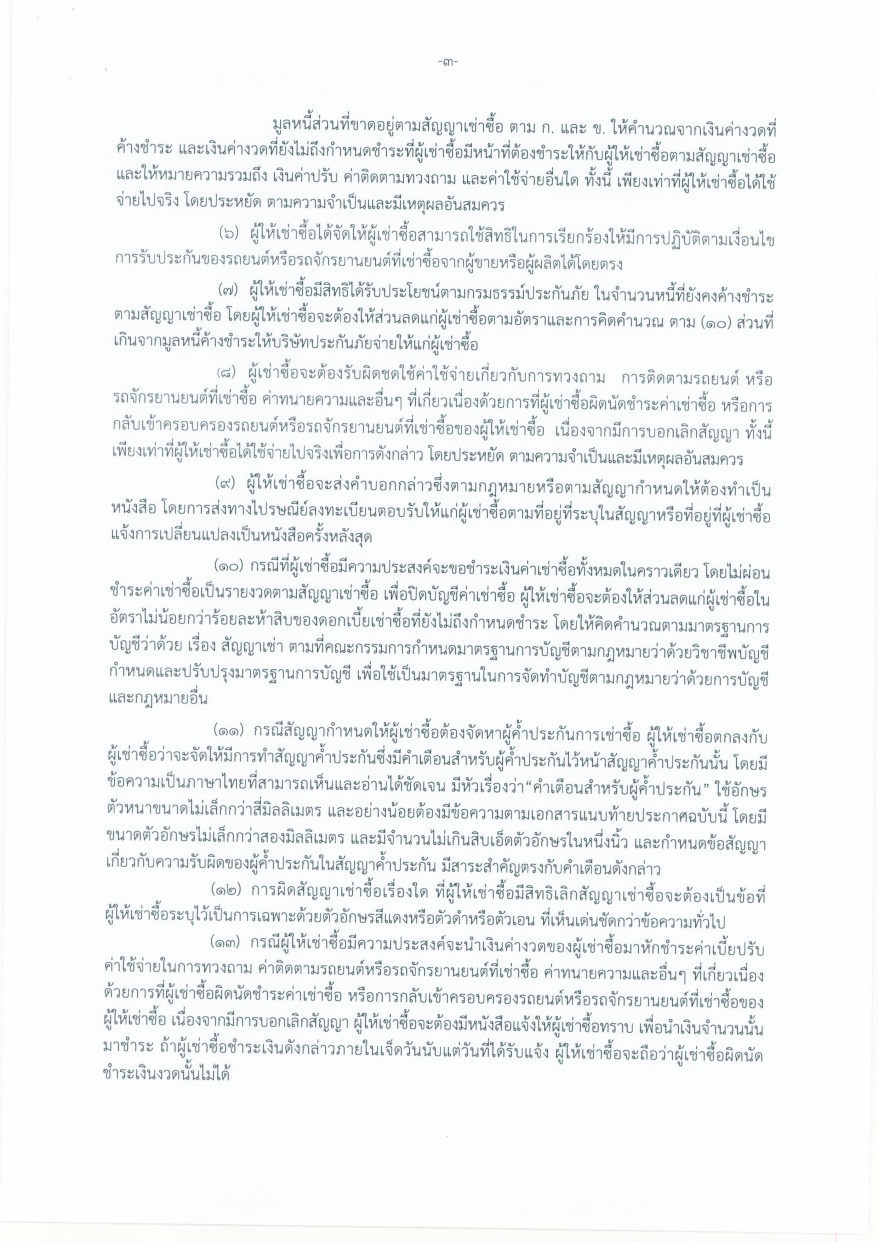 -๓-
มูลหนี้ส่วนที่ขาดอยู่ตามสัญญาเช่าซื้อ ตาม ก. และ ข. ให้คำนวณจากเงินค่างวดที่
ค้างชำระ และเงินค่างวดที่ยังไม่ถึงกำหนดชำระที่ผู้เช่าซื้อมีหน้าที่ต้องชำระให้กับผู้ให้เช่าซื้อตามสัญญาเช่าซื้อ
และให้หมายความรวมถึง เงินค่าปรับ ค่าติดตามทวงถาม และค่าใช้จ่ายอื่นใด ทั้งนี้ เพียงเท่าที่ผู้ให้เช่าซื้อได้ใช้
จ่ายไปจริง โดยประหยัด ตามความจำเป็นและมีเหตุผลอันสมควร
(๖) ผู้ให้เช่าซื้อได้จัดให้ผู้เช่าซื้อสามารถใช้สิทธิในการเรียกร้องให้มีการปฏิบัติตามเงื่อนไข
การรับประกันของรถยนต์หรือรถจักรยานยนต์ที่เช่าซื้อจากผู้ขายหรือผู้ผลิตได้โดยตรง
(๗) ผู้ให้เช่าซื้อมีสิทธิได้รับประโยชน์ตามกรมธรรม์ประกันภัย ในจำนวนหนี้ที่ยังคงค้างชำระ
ตามสัญญาเช่าซื้อ โดยผู้ให้เช่าซื้อจะต้องให้ส่วนลดแก่ผู้เช่าซื้อตามอัตราและการคิดคำนวณ ตาม (๑๐) ส่วนที่
เกินจากมูลหนี้ค้างชำระให้บริษัทประกันภัยจ่ายให้แก่ผู้เช่าซื้อ
(๘) ผู้เช่าซื้อจะต้องรับผิดชดใช้ค่าใช้จ่ายเกี่ยวกับการทวงถาม การติดตามรถยนต์ หรือ
รถจักรยานยนต์ที่เช่าซื้อ ค่าทนายความและอื่นๆ ที่เกี่ยวเนื่องด้วยการที่ผู้เช่าซื้อผิดนัดชำระค่าเช่าซื้อ หรือการ
กลับเข้าครอบครองรถยนต์หรือรถจักรยานยนต์ที่เช่าซื้อของผู้ให้เช่าซื้อ เนื่องจากมีการบอกเลิกสัญญา ทั้งนี้
เพียงเท่าที่ผู้ให้เช่าซื้อได้ใช้จ่ายไปจริงเพื่อการดังกล่าว โดยประหยัด ตามความจำเป็นและมีเหตุผลอันสมควร
(๙) ผู้ให้เช่าซื้อจะส่งคำบอกกล่าวซึ่งตามกฎหมายหรือตามสัญญากำหนดให้ต้องทำเป็น
หนังสือ โดยการส่งทางไปรษณีย์ลงทะเบียนตอบรับให้แก่ผู้เช่าซื้อตามที่อยู่ที่ระบุในสัญญาหรือที่อยู่ที่ผู้เช่าซื้อ
แจ้งการเปลี่ยนแปลงเป็นหนังสือครั้งหลังสุด
(๑๐) กรณีที่ผู้เช่าซื้อมีความประสงค์จะขอชำระเงินค่าเช่าซื้อทั้งหมดในคราวเดียว โดยไม่ผ่อน
ชำระค่าเช่าซื้อเป็นรายงวดตามสัญญาเช่าซื้อ เพื่อปิดบัญชีค่าเช่าซื้อ ผู้ให้เช่าซื้อจะต้องให้ส่วนลดแก่ผู้เช่าซื้อใน
อัตราไม่น้อยกว่าร้อยละห้าสิบของดอกเบี้ยเช่าซื้อที่ยังไม่ถึงกำหนดชำระ โดยให้คิดคำนวณตามมาตรฐานการ
บัญชีว่าด้วย เรื่อง สัญญาเช่า ตามที่คณะกรรมการกำหนดมาตรฐานการบัญชีตามกฎหมายว่าด้วยวิชาชีพบัญชี
กำหนดและปรับปรุงมาตรฐานการบัญชี เพื่อใช้เป็นมาตรฐานในการจัดทำบัญชีตามกฎหมายว่าด้วยการบัญชี
และกฎหมายอื่น
(๑๑) กรณีสัญญากำหนดให้ผู้เช่าซื้อต้องจัดหาผู้ค้ำประกันการเช่าซื้อ ผู้ให้เช่าซื้อตกลงกับ
ผู้เช่าซื้อว่าจะจัดให้มีการทำสัญญาค้ำประกันซึ่งมีคำเตือนสำหรับผู้ค้ำประกันไว้หน้าสัญญาค้ำประกันนั้น โดยมี
ข้อความเป็นภาษาไทยที่สามารถเห็นและอ่านได้ชัดเจน มีหัวเรื่องว่า“คำเตือนสำหรับผู้ค้ำประกัน” ใช้อักษร
ตัวหนาขนาดไม่เล็กกว่าสี่มิลลิเมตร และอย่างน้อยต้องมีข้อความตามเอกสารแนบท้ายประกาศฉบับนี้ โดยมี
ขนาดตัวอักษรไม่เล็กกว่าสองมิลลิเมตร และมีจำนวนไม่เกินสิบเอ็ดตัวอักษรในหนึ่งนิ้ว และกำหนดข้อสัญญา
เกี่ยวกับความรับผิดของผู้ค้ำประกันในสัญญาค้ำประกัน มีสาระสำคัญตรงกับคำเตือนดังกล่าว
(๑๒) การผิดสัญญาเช่าซื้อเรื่องใด ที่ผู้ให้เช่าซื้อมีสิทธิเลิกสัญญาเช่าซื้อจะต้องเป็นข้อที่
ผู้ให้เช่าซื้อระบุไว้เป็นการเฉพาะด้วยตัวอักษรสีแดงหรือตัวดำหรือตัวเอน ที่เห็นเด่นชัดกว่าข้อความทั่วไป
(๑๓) กรณีผู้ให้เช่าซื้อมีความประสงค์จะนำเงินค่างวดของผู้เช่าซื้อมาหักชำระค่าเบี้ยปรับ
ค่าใช้จ่ายในการทวงถาม ค่าติดตามรถยนต์หรือรถจักรยานยนต์ที่เช่าซื้อ ค่าทนายความและอื่นๆ ที่เกี่ยวเนื่อง
ด้วยการที่ผู้เช่าซื้อผิดนัดชำระค่าเช่าซื้อ หรือการกลับเข้าครอบครองรถยนต์หรือรถจักรยานยนต์ที่เช่าซื้อของ
ผู้ให้เช่าซื้อ เนื่องจากมีการบอกเลิกสัญญา ผู้ให้เช่าซื้อจะต้องมีหนังสือแจ้งให้ผู้เช่าซื้อทราบ เพื่อนำเงินจำนวนนั้น
มาชำระ ถ้าผู้เช่าซื้อชำระเงินดังกล่าวภายในเจ็ดวันนับแต่วันที่ได้รับแจ้ง ผู้ให้เช่าซื้อจะถือว่าผู้เช่าซื้อผิดนัด
ชำระเงินงวดนั้นไม่ได้